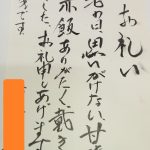 お礼い
老わは、思いがけない、甘
赤飯ありがたく、戴き
した、お礼申しあげます
です